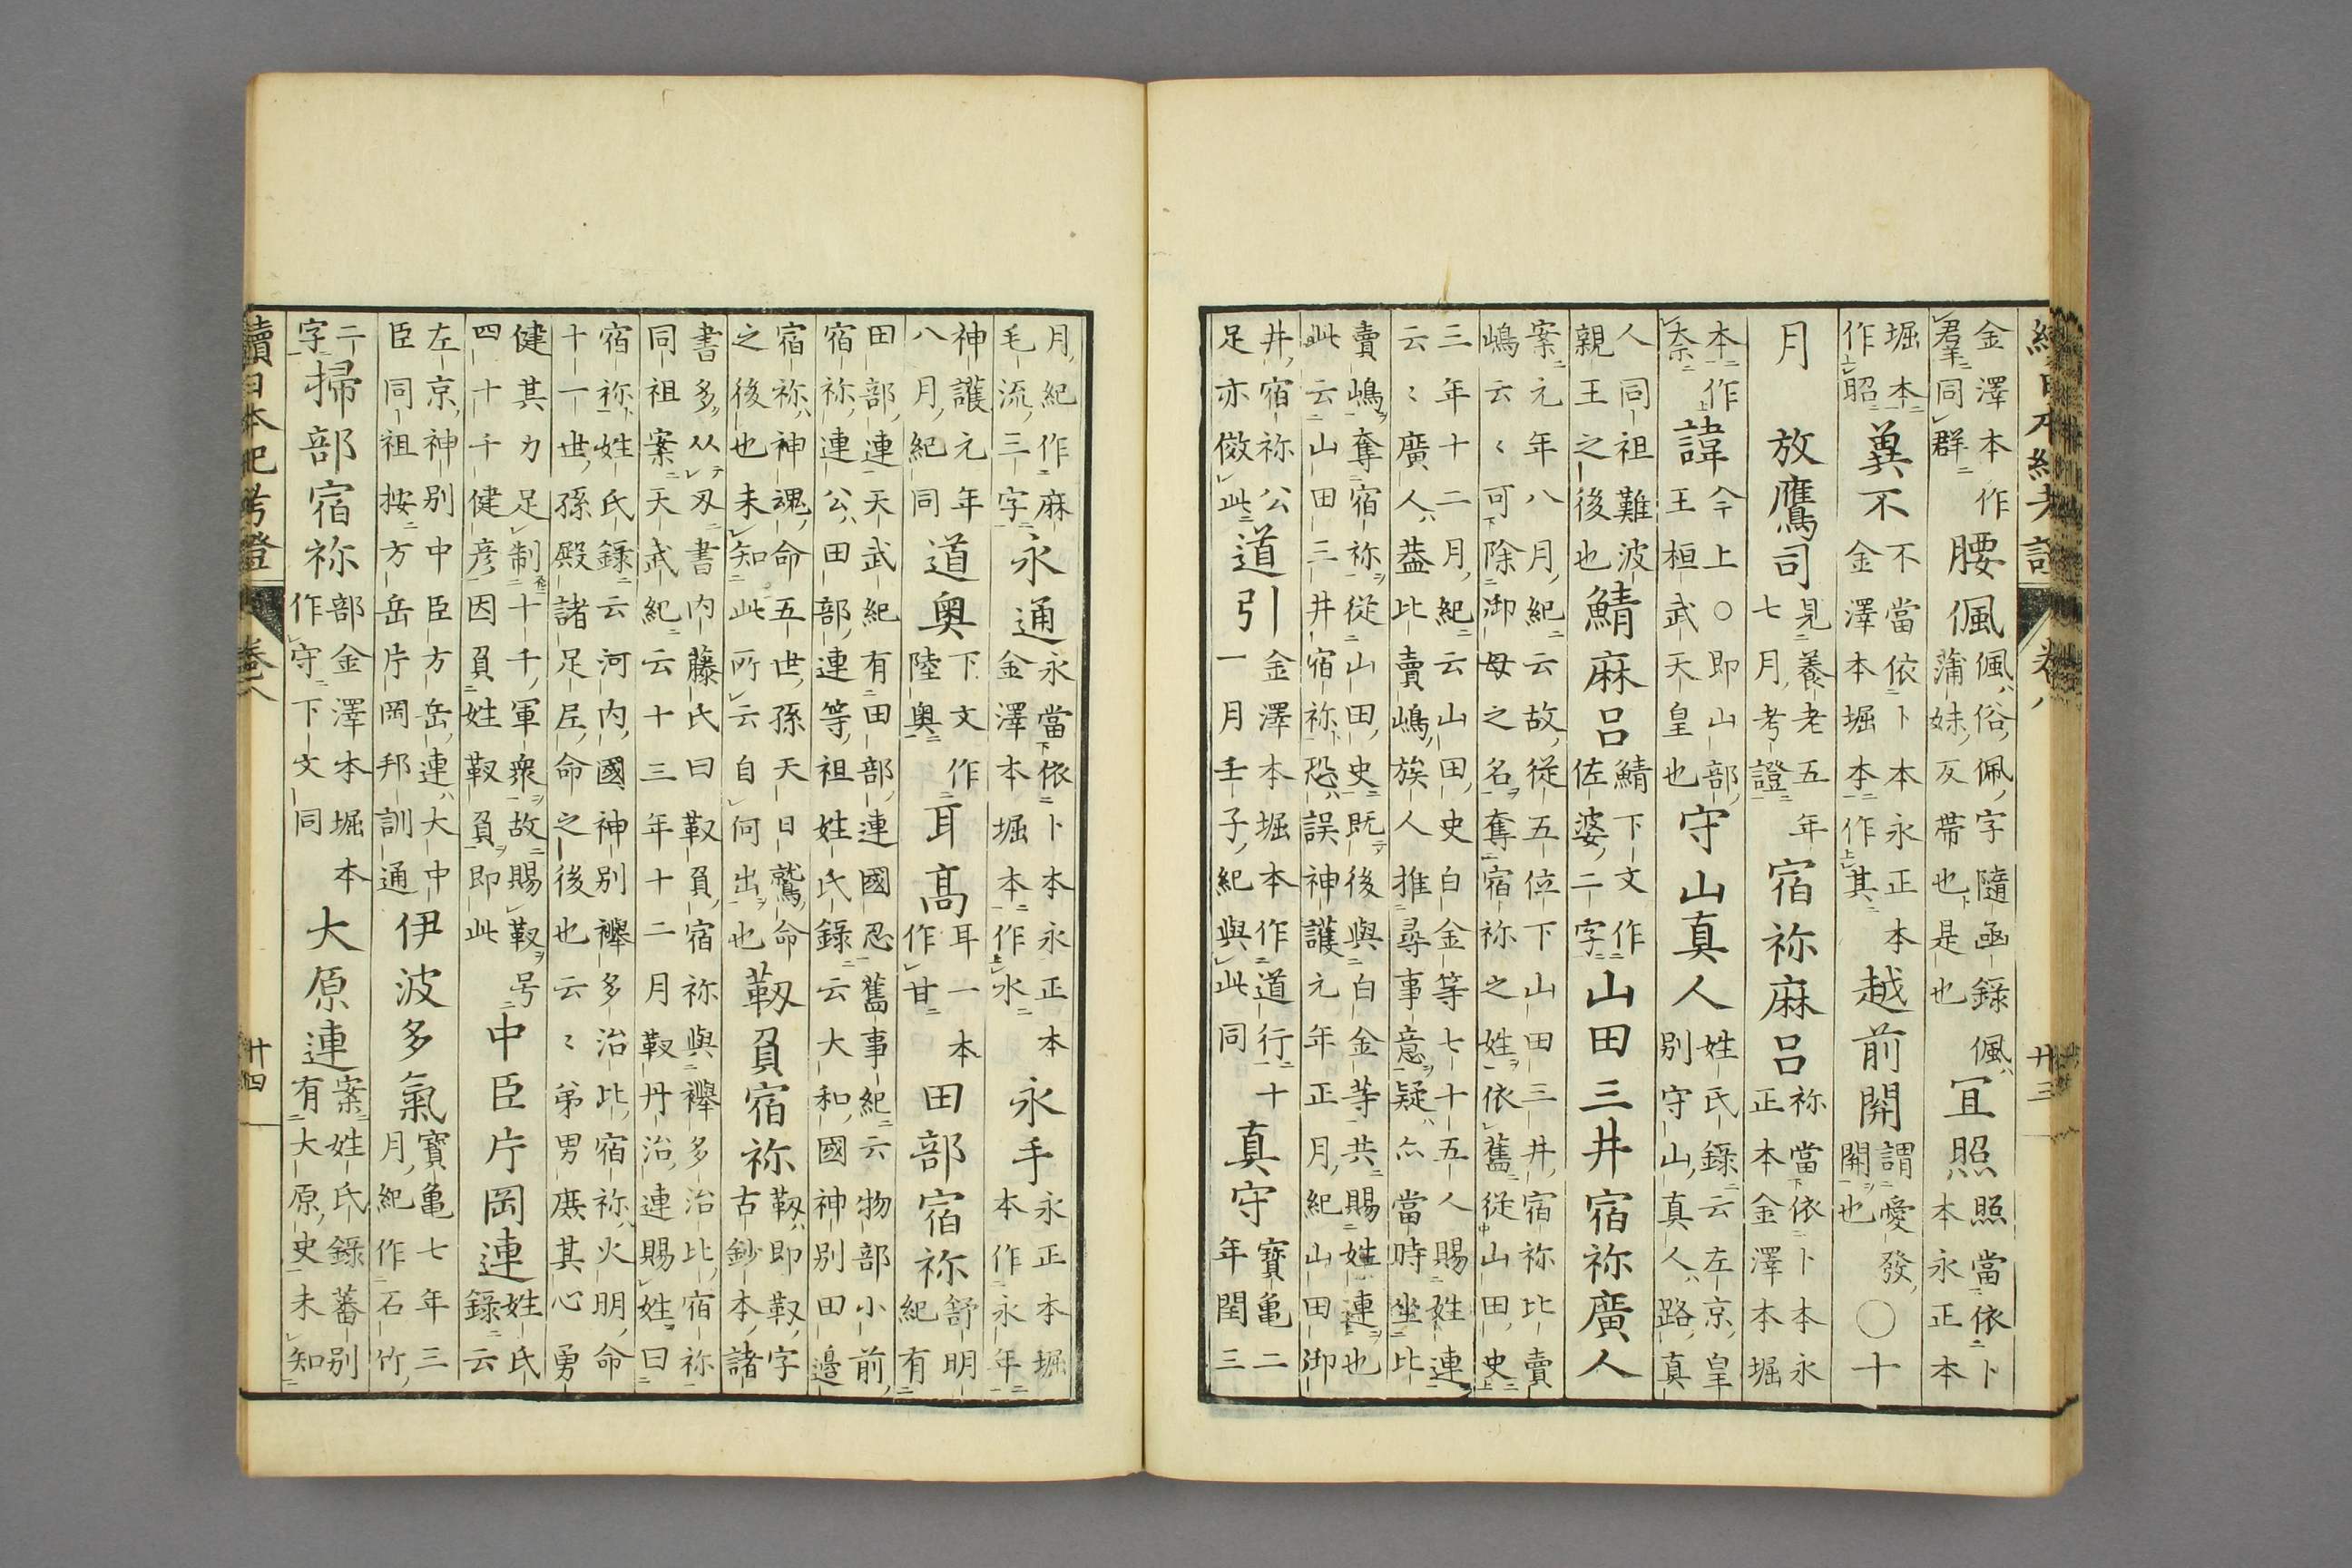 卷八
廿三
金澤本作羣同群腰偑偑俗佩字隨函錄偑蒲妹反帶也是也宜照照當依卜本永正本
堀本作昭奠不不當依卜本永正本金澤本堀本作其越前開謂愛發開也○十
月 放鷹司見養老五年七月考證宿祢麻呂祢當依卜本永正本金澤本堀
本作奈諱今上○即山部王桓武天皇也守山真人姓氏錄云左京皇別守山真人路真
人同祖難波親王之後也鯖麻呂鯖下文作佐婆二字山田三井宿祢廣人
案元年八月紀云故從五位下山田三井宿祢比賣
嶋云〻可除御母之名奪宿祢之姓依舊從山田史
三年十二月紀云山田史白金等七十五人賜姓連
云〻廣人蓋比賣嶋族人推尋事意疑亦當時坐比
賣嶋奪宿祢從山田史既後與白金等共賜姓連也
此云山田三井宿祢恐誤神護元年正月紀山田御
井宿祢公足亦倣此道引金澤本堀本作道行十一月壬子紀與此同真守寶亀二年閏三
月紀作麻毛流三字永通永當依卜本永正本金澤本堀本作水永手永正本堀本作永年
神護元年八月紀同道奥下文作陸奥耳髙耳一本作甘田部宿祢舒明紀有
田部連天武紀有田部連國忍舊事紀云物部小前
宿祢連公田部連等祖姓氏錄云大和國神別田邊
宿祢神魂命五世孫天日鷲命之後也未知此所云自何出也靱負宿祢靱即靫字古鈔本諸
書多从刄書内藤氏曰靫負宿祢與襷多治比宿祢
同祖案天武紀云十三年十二月靫丹治連賜姓曰
宿祢姓氏錄云河内國神別襷多治比宿祢火明命
十一世孫殿諸足尼命之後也云〻弟男庶其心勇
健其力足制十千軍衆故賜靫号四十千健彦因負姓靫負即此中臣片岡連姓氏錄云
左京神別中臣方岳連大中臣同祖按方岳片岡邦訓通伊波多氣寶亀七年三月紀作石竹
二字掃部宿祢部金澤本堀本作守下文同大原連案姓氏錄蕃別有大原史未知
續日本紀考證
卷八
廿四